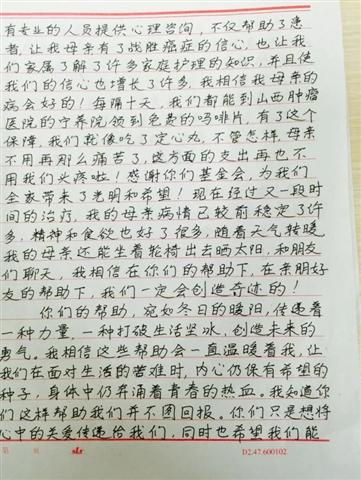 有专业的人员提供心理咨询，不仅帮助了患
者，让我母亲有了战胜癌症的信心，也让我
们家属了解了许多家庭护理的知识，并且使
我们的信心也增长了许多，我相信我母亲的
病会好的！每隔十天，我们都能到山西肿瘤
医院的宁养院领到免费的吗啡片，有了这个
保障，我们就像吃了定心丸，不管怎样，母亲
不用再那么痛苦了，这方面的支出再也不
用我们头疼啦！感谢你们基金会，为我们
全家带来了光明和希望！现在经过又一段时
间的治疗，我的母亲病情已较前稳定了许
多，精神和食欲也好了很多，随着天气转暖
我的母亲还能坐着轮椅出去晒太阳，和朋友
们聊天，我相信在你们的帮助下，在亲朋好
友的帮助下，我们一定会创造奇迹的！
你们的帮助，宛如冬日的暖阳，传递着
一种力量，一种打破生活坚冰，创造未来的
勇气。我相信这些帮助会一直温暖着我，让
我们在面对生活的苦难时，内心仍保有希望的
种子，身体中仍奔涌着青春的热血。我知道你
们这样帮助我们并不图回报。你们只是想将
心中的关爱传递给我们，同时也希望我们能
第 页 sls D2.47.600102